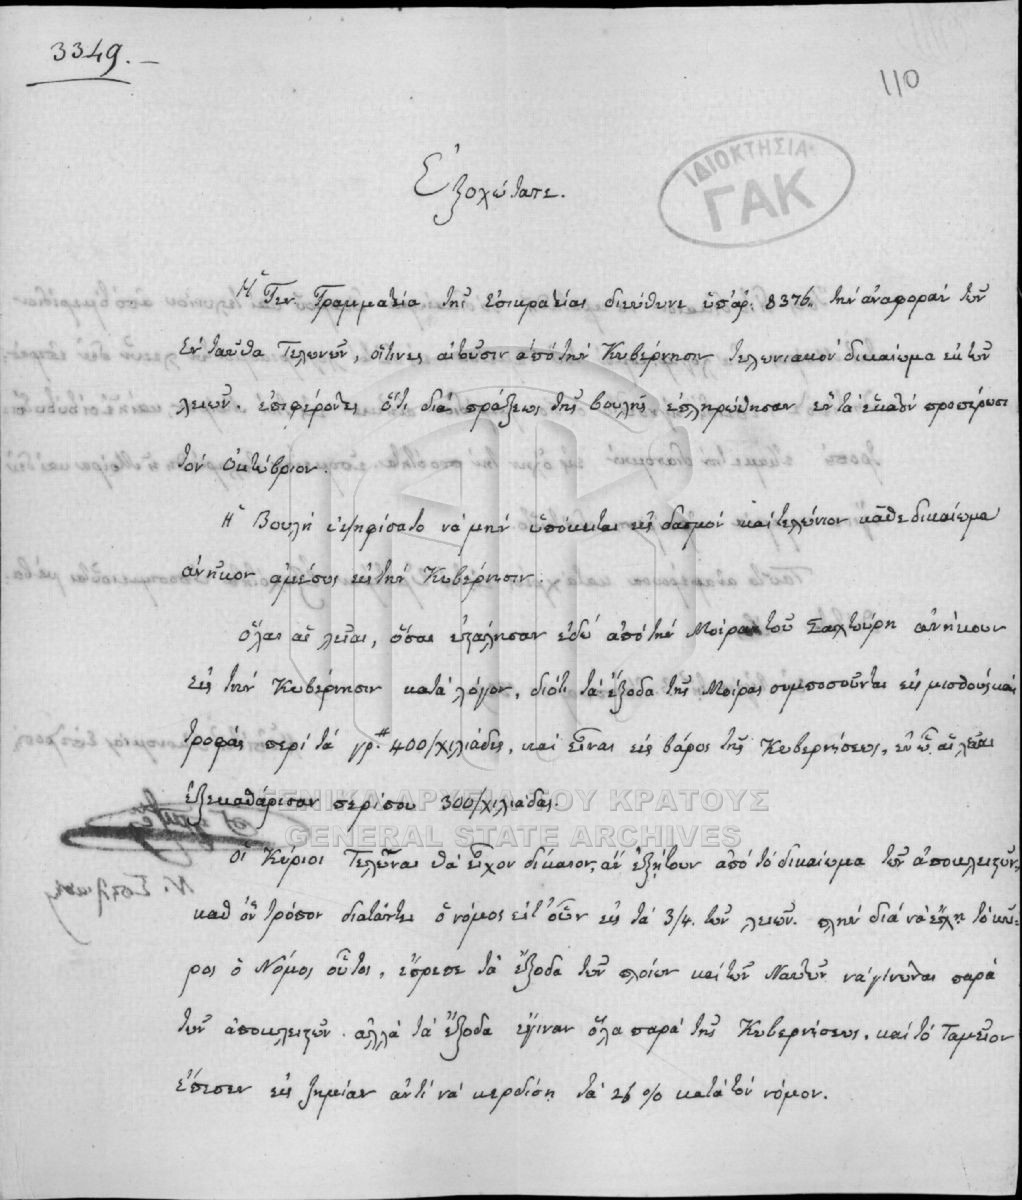 3349.–
110
ΙΔΙΟΚΤΗΣΙΑ
ΓΑΚ
Ἐξοχώτατε.
Ἡ Γεν. Γραμματεία τῆς ἐπικρατείας διεύθυνε ὑπ' ἀρ. 8376. τὴν ἀναφορὰν τῶν
ἐνταῦθα Τελωνῶν, οἵτινες αἰτοῦσιν ἀπὸ τὴν Κυβέρνησιν τελωνιακὸν δικαίωμα ἐκ τῶν
λειῶν. ἐπιφέροντες ὅτι διὰ πράξεως τῆς βουλῆς ἐπληρώθησαν
τὸν Ὀκτώβριον.
Ἡ Βουλὴ ἐψηφίσατο νὰ μὴν ὑπόκειται εἰς δασμὸν καὶ τελώνιον κᾶθε δικαίωμα
ἀνῆκον ἀμέσως εἰς τὴν Κυβέρνησιν.
Ὅλαι αἱ λεῖαι, ὅσαι ἐπωλήθησαν ἐδῶ ἀπὸ τὴν Μοίραν τοῦ Σαχτούρη ἀνήκουν
εἰς τὴν Κυβέρνησιν κατὰ λόγον, διότι τὰ ἔξοδα τῆς Μοίρας συμποσοῦνται εἰς μισθοὺς καὶ
τροφὰς περὶ τὰ γρ. 400/χιλιάδες, καὶ εἶναι εἰς βάρος τῆς Κυβερνήσεως, ἐν ᾧ αἱ λεῖαι
ἐξεκαθάρισαν περίπου 300/χιλιάδας.
ΓΕΝΙΚΑ ΑΡΧΕΙΑ ΤΟΥ ΚΡΑΤΟΥΣ
GENERAL STATE ARCHIVES
Οἱ Κύριοι Τελῶναι θὰ εἶχον δίκαιον, ἂν ἐζήτουν ἀπὸ τὸ δικαίωμα τῶν ἀποκλειζόντων,
καθ' ὃν τρόπον διατάττει ὁ νόμος εἰς τὰ 3/4. τῶν λειῶν. πλὴν διὰ νὰ ἔχῃ τὸ κῦ-
ρος ὁ Νόμος οὗτος, ἔπρεπε τὰ ἔξοδα τῶν πλοίων καὶ τῶν Ναυτῶν νὰ γίνωνται παρὰ
τῶν ἀποκλειζόντων. ἀλλὰ τὰ ἔξοδα ἔγιναν ὅλα παρὰ τῆς Κυβερνήσεως, καὶ τὸ Ταμεῖον
ἔπεσεν εἰς ζημίαν ἀντὶ νὰ κερδίσῃ τὰ 25 % κατὰ τὸν νόμον.